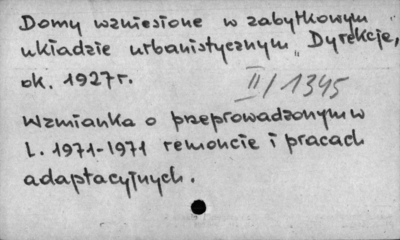 Domy wzniesione w zabytkowym
układzie urbanistycznym „Dyrekcje,
ok. 1927r.
II/1345
Wzmianka o przeprowadzonym w
L. 1971-1971 remoncie i pracach
adaptacyjnych.